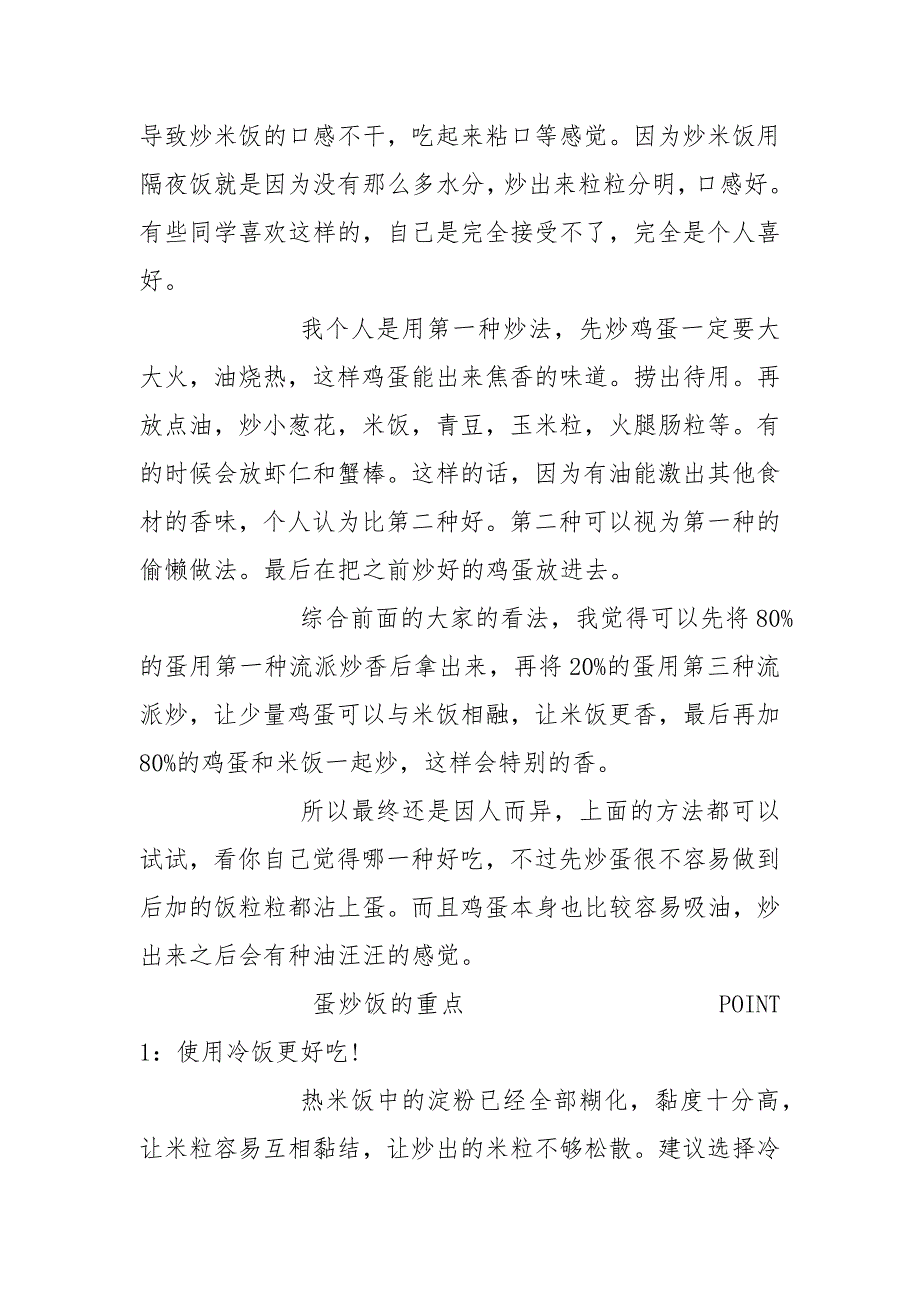 导致炒米饭的口感不干，吃起来粘口等感觉。因为炒米饭用
隔夜饭就是因为没有那么多水分，炒出来粒粒分明，口感好。
有些同学喜欢这样的，自己是完全接受不了，完全是个人喜
好。
我个人是用第一种炒法，先炒鸡蛋一定要大
大火，油烧热，这样鸡蛋能出来焦香的味道。捞出待用。再
放点油，炒小葱花，米饭，青豆，玉米粒，火腿肠粒等。有
的时候会放虾仁和蟹棒。这样的话，因为有油能激出其他食
材的香味，个人认为比第二种好。第二种可以视为第一种的
偷懒做法。最后在把之前炒好的鸡蛋放进去。
综合前面的大家的看法，我觉得可以先将80%
的蛋用第一种流派炒香后拿出来，再将20%的蛋用第三种流
派炒，让少量鸡蛋可以与米饭相融，让米饭更香，最后再加
80%的鸡蛋和米饭一起炒，这样会特别的香。
所以最终还是因人而异，上面的方法都可以
试试，看你自己觉得哪一种好吃，不过先炒蛋很不容易做到
后加的饭粒粒都沾上蛋。而且鸡蛋本身也比较容易吸油，炒
出来之后会有种油汪汪的感觉。
蛋炒饭的重点 POINT
1：使用冷饭更好吃!
热米饭中的淀粉已经全部糊化，黏度十分高，
让米粒容易互相黏结，让炒出的米粒不够松散。建议选择冷